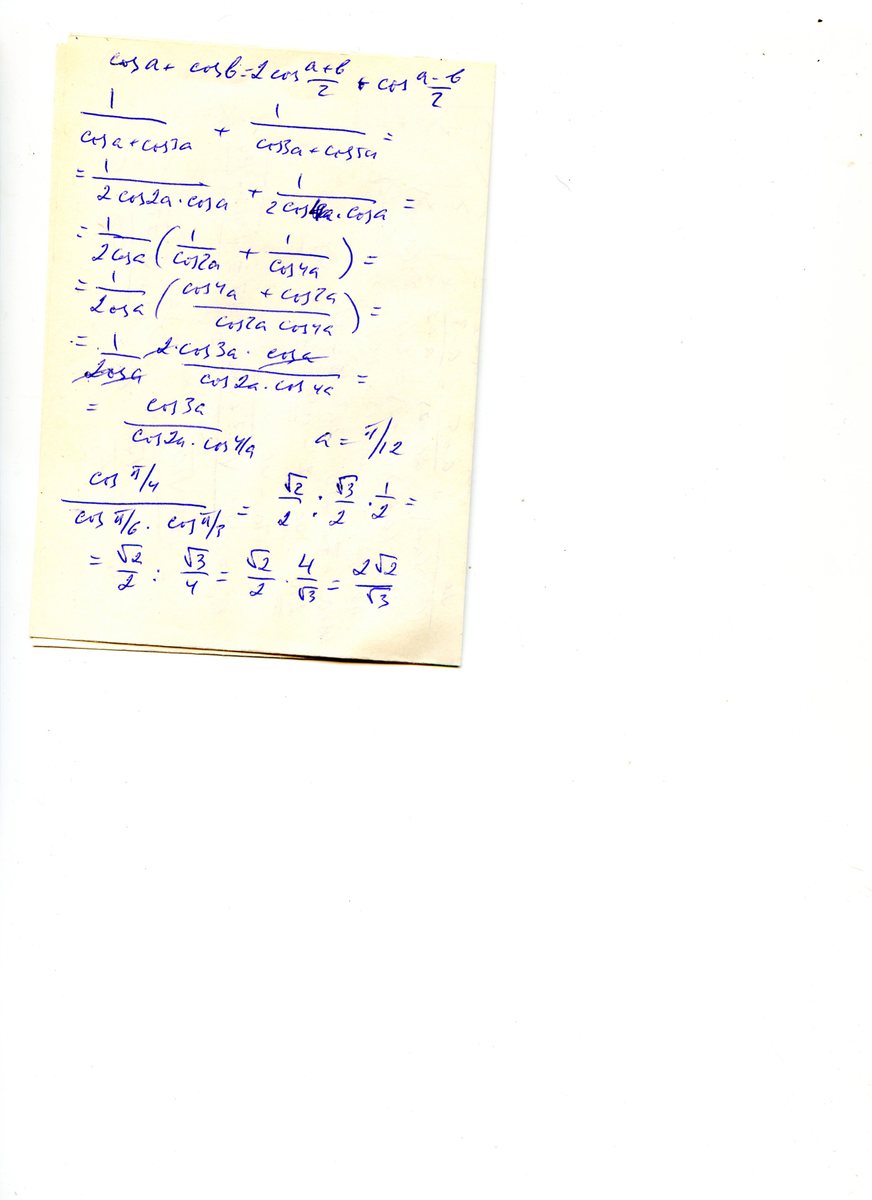 cos a + cos b = 2 cos (a+b)/2 + cos (a-b)/2
1/(cos a + cos 3a) + 1/(cos 3a + cos 5a) =
= 1/(2 cos 2a · cos a) + 1/(2 cos 4a · cos a) =
= 1/(2 cos a) (1/cos 2a + 1/cos 4a) =
= 1/(2 cos a) ((cos 4a + cos 2a)/(cos 2a cos 4a)) =
= 1/(2 cos a) (2 · cos 3a · cos a)/(cos 2a · cos 4a) =
= cos 3a/(cos 2a · cos 4a) a = π/12
cos π/4/(cos π/6 · cos π/3) = √2/2 : √3/2 · 1/2 =
= √2/2 : √3/4 = √2/2 · 4/√3 = 2√2/√3